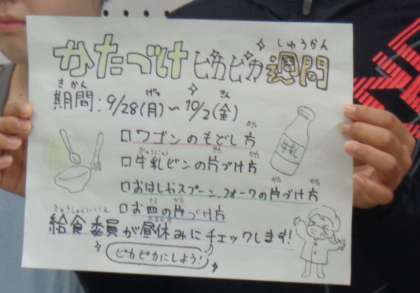 かたづけピカピカ週間
期間：9/28(月)〜10/2(金)
ロワゴンのもどし方
ロ牛乳ビンの片づけ方
ロおはし、スプーン、フォークの片づけ方
ロお皿の片づけ方
給食委員が昼休みにチェックします！
ピカピカにしよう！
牛乳